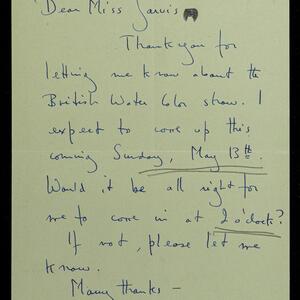 Dear Miss Jarvis
Thank you for
letting me know about the
British Water Color show. I
expect to come up this
coming Sunday, May 13th.
Would it be all right for
me to come in at 2 o'clock?
If not, please let me
know.
Many thanks –